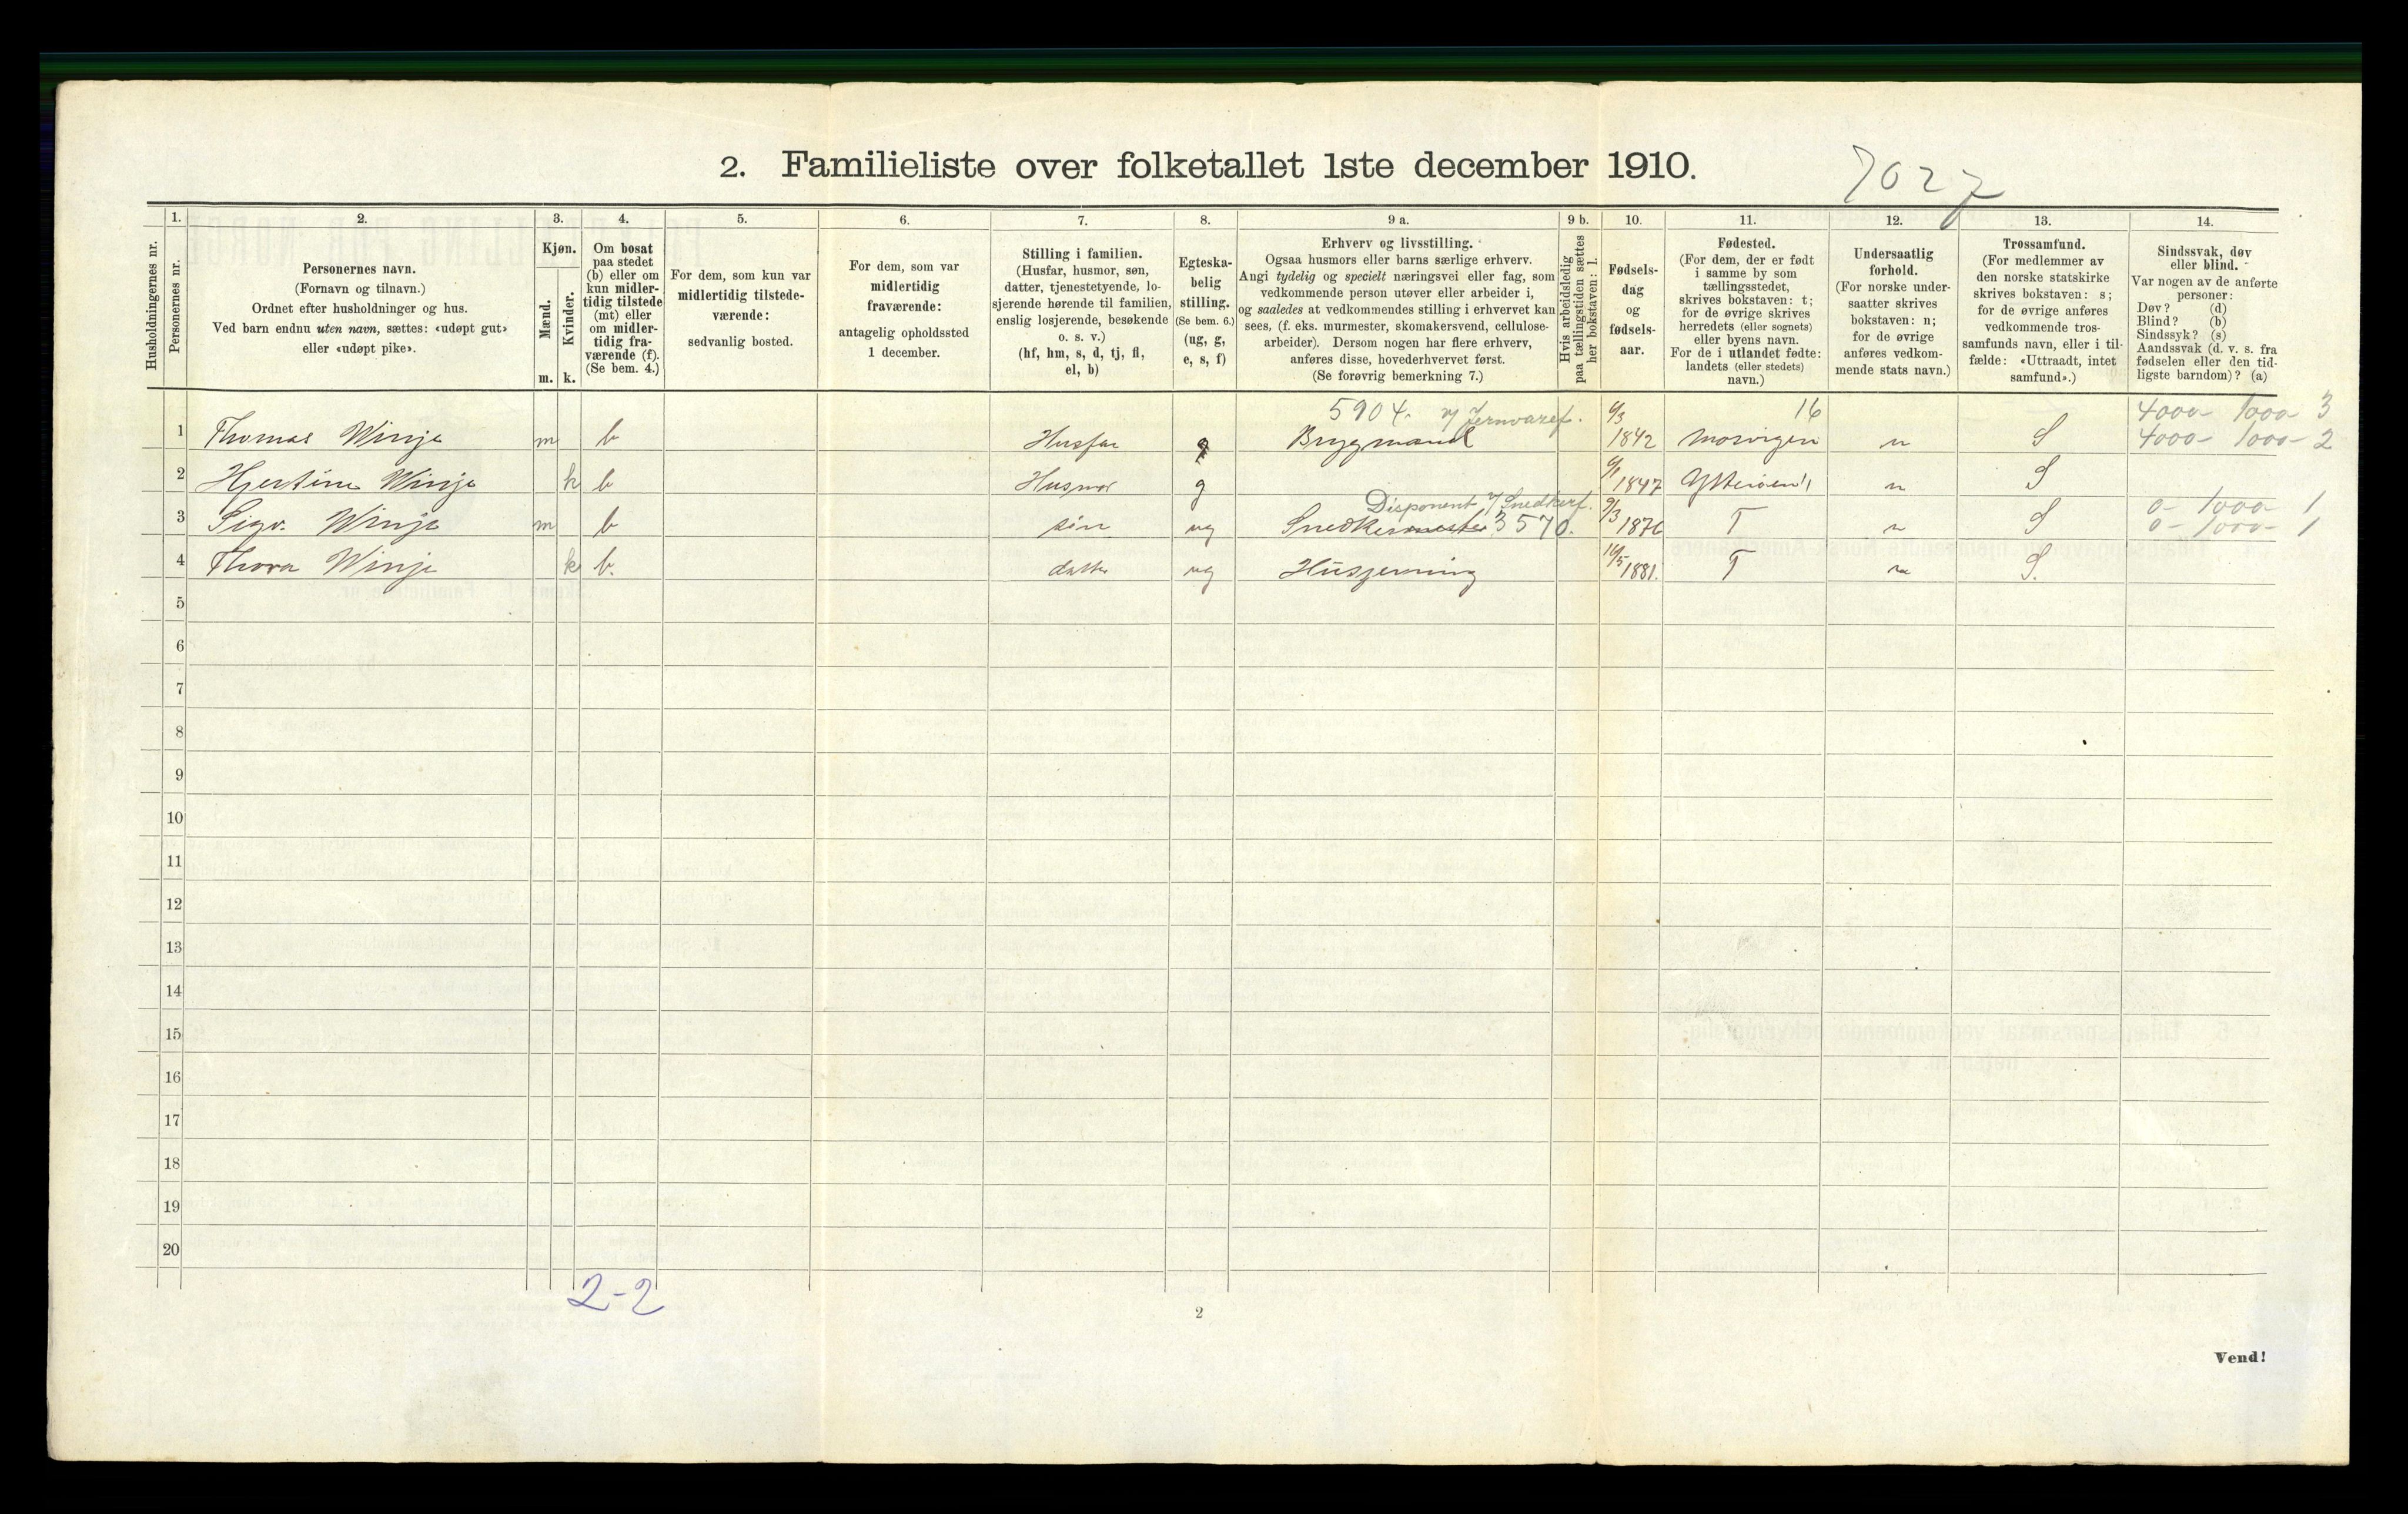 2. Familieliste over folketallet 1ste december 1910.
7027
Husholdningernes nr.
1.
Personernes nr.
2.
Personernes navn.
(Fornavn og tilnavn.)
Ordnet efter husholdninger og hus.
Ved barn endnu uten navn, sættes: «udøpt gut»
eller «udøpt pike».
3.
Kjøn.
Mænd.
Kvinder.
m. k.
4.
Om bosat
paa stedet
(b) eller om
kun midler-
tidig tilstede
(mt) eller
om midler-
tidig fra-
værende (f).
(Se bem. 4.)
5.
For dem, som kun var
midlertidig tilstede-
værende:
sedvanlig bosted.
6.
For dem, som var
midlertidig
fraværende:
antagelig opholdssted
1 december.
7.
Stilling i familien.
(Husfar, husmor, søn,
datter, tjenestetyende, lo-
sjerende hørende til familien,
enslig losjerende, besøkende
o. s. v.)
(hf, hm, s, d, tj, fl,
el, b)
8.
Egteska-
belig
stilling.
(Se bem. 6.)
(ug, g,
e, s, f)
9 a.
Erhverv og livsstilling.
Ogsaa husmors eller barns særlige erhverv.
Angi tydelig og specielt næringsvei eller fag, som
vedkommende person utøver eller arbeider i,
og saaledes at vedkommendes stilling i erhvervet kan
sees, (f. eks. murmester, skomakersvend, cellulose-
arbeider). Dersom nogen har flere erhverv,
anføres disse, hovederhvervet først.
(Se forøvrig bemerkning 7.)
9 b.
Hvis arbeidsledig
paa tællingstiden sættes
her bokstaven: l.
10.
Fødsels-
dag
og
fødsels-
aar.
11.
Fødested.
(For dem, der er født
i samme by som
tællingsstedet,
skrives bokstaven: t;
for de øvrige skrives
herredets (eller sognets)
eller byens navn.
For de i utlandet fødte:
landets (eller stedets)
navn.)
12.
Undersaatlig
forhold.
(For norske under-
saatter skrives
bokstaven: n;
for de øvrige
anføres vedkom-
mende stats navn.)
13.
Trossamfund.
(For medlemmer av
den norske statskirke
skrives bokstaven: s;
for de øvrige anføres
vedkommende tros-
samfunds navn, eller i til-
fælde: «Uttraadt, intet
samfund».)
14.
Sindssvak, døv
eller blind.
Var nogen av de anførte
personer:
Døv? (d)
Blind? (b)
Sindssyk? (s)
Aandssvak (d. v. s. fra
fødselen eller den tid-
ligste barndom)? (a)
5904. v/ Jernvaref. 6/3 16 4000- 1000- 3
1 Thomas Winje m b Husfar g Bryggmand 1842 n S 4000- 1000- 2
2 Winje k b Husmor g 6/1 1847 Ytterøen n S
Disponent v/ Snedkerf. 0- 1000- 1
3 Sigv. Winje m b søn ug Snedkermester 3570. 9/3 1876 T n S 0- 1000- 1
4 Thora Winje k b. datter ug Husgjerning 16/5 1881. T n S.
5
6
7
8
9
10
11
12
13
14
15
16
17
18
19
20
2-2
2
Vend!